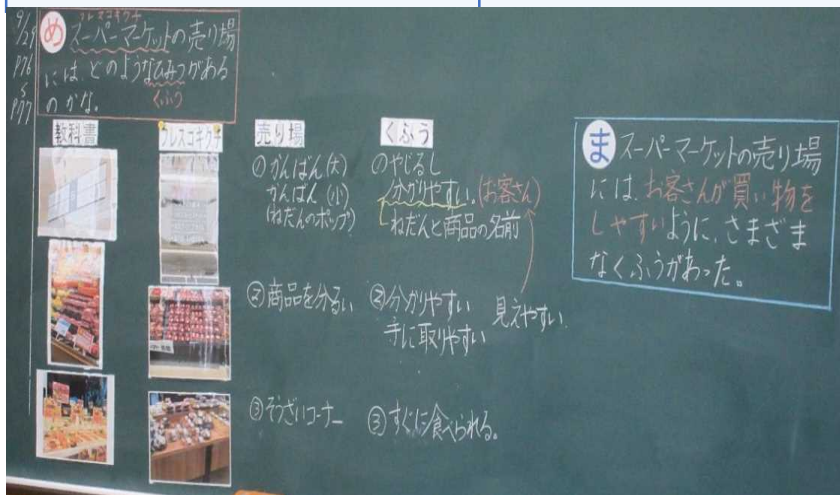 9/29
P76
P77
め
フレスコキクチ
スーパーマーケットの売り場
には、どのようなひみつがある
のかな。
くふう
教科書
フレスコキクチ
売り場
くふう
①かんばん(大)
かんばん(小)
(ねだんのポップ)
①やじるし
分かりやすい。(お客さん)
ねだんと商品の名前
②商品を分るい
②分かりやすい
手に取りやすい
見えやすい
③そうざいコーナー
③すぐに食べられる。
ま
スーパーマーケットの売り場
には、お客さんが買い物を
しやすいように、さまざま
なくふうがあった。